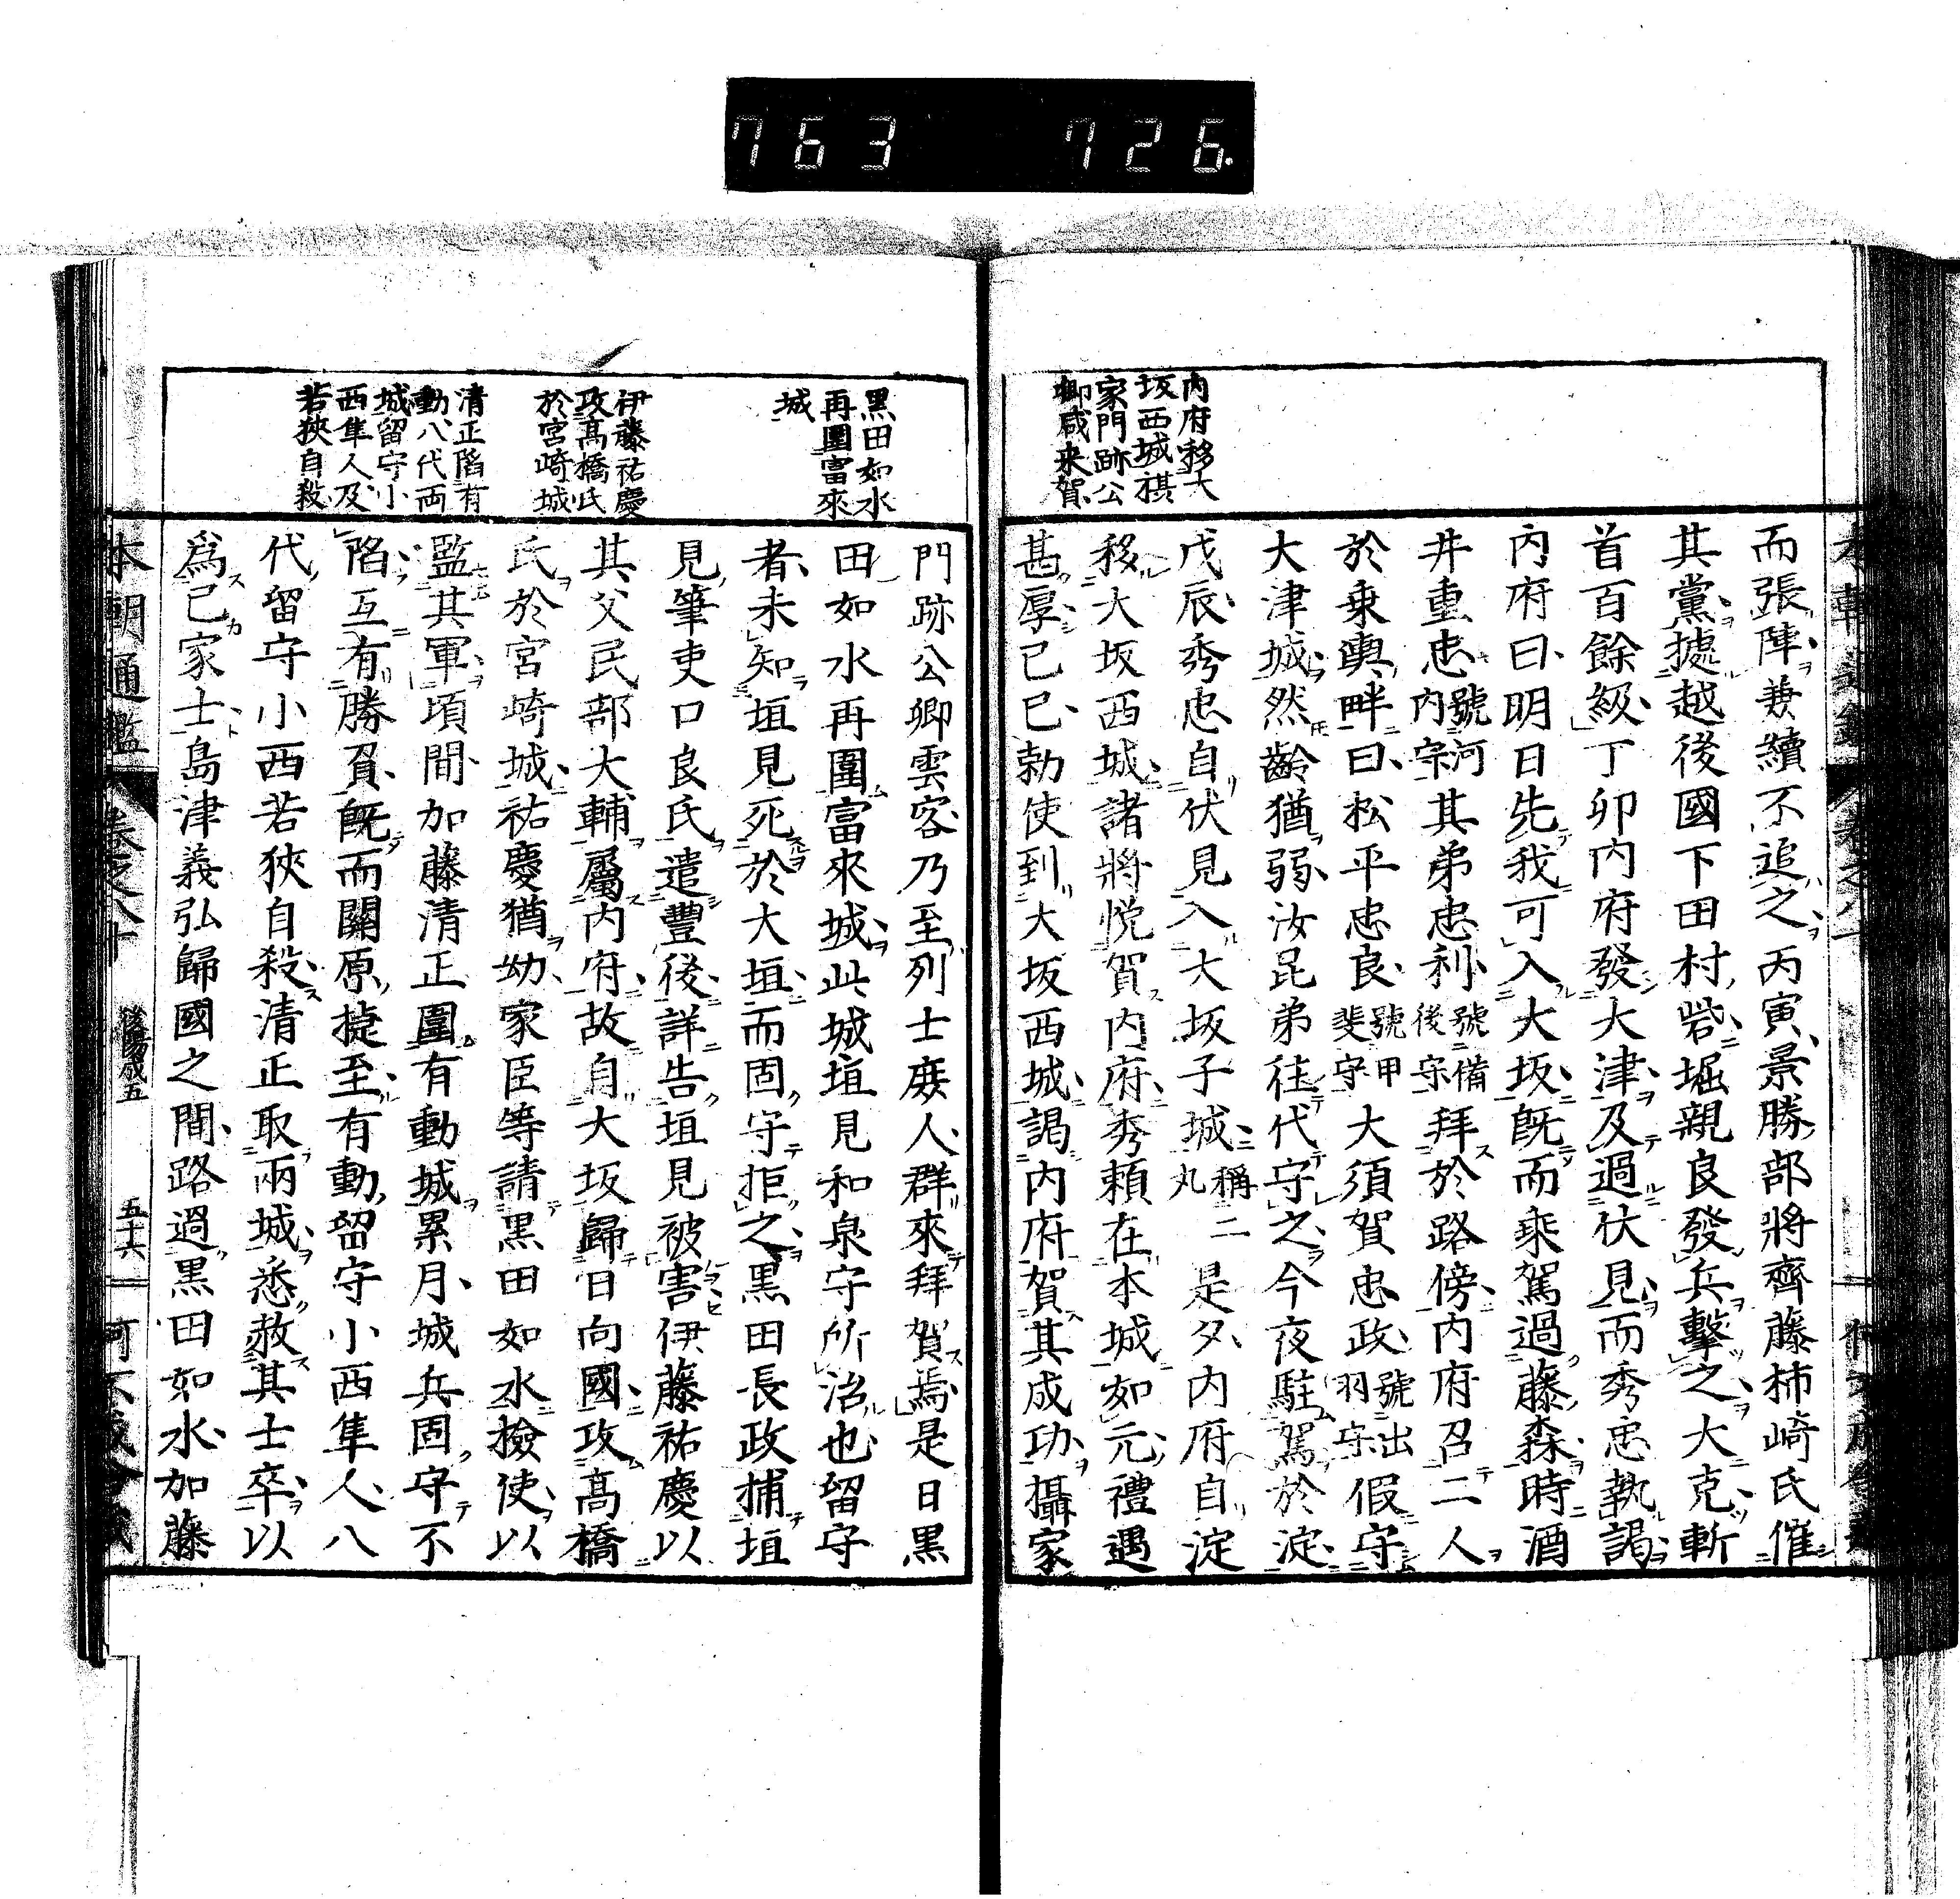 763 726.
内府移大
坂西城摂
家門跡公
卿咸来賀
而張陣兼續不追之丙寅景勝部將齊藤柿崎氏催
其黨據越後國下田村砦堀親良發兵擊之大克斬
首百餘級丁卯内府發大津及過伏見而秀忠執謁
内府曰明日先我可入大坂旣而乘駕過藤森時酒
井重忠號河内守其弟忠利號備後守拜於路傍内府召二人
於乗輿畔曰松平忠良號甲斐守大須賀忠政號出羽守假守
大津城然齡猶弱汝昆弟往代守之今夜駐駕於淀
戊辰秀忠自伏見入大坂子城稱二丸是夕内府自淀
移大坂西城諸將悦賀内府秀頼在本城如元禮遇
甚厚己巳勅使到大坂西城謁内府賀其成功攝家
黒田如水
再圍富來
城
伊藤祐慶
攻髙橋氏
於宮崎城
清正陷有
動八代両
城留守小
西隼人及
若狹自殺
門跡公卿雲客乃至列士庻人群來拜賀焉是日黒
田如水再圍富來城此城垣見和泉守所治也留守
者未知垣見死於大垣而固守拒之黒田長政捕垣
見筆吏口良氏遣豐後詳告垣見被害伊藤祐慶以
其父民部大輔屬内府故自大坂歸日向國攻髙橋
氏於宮崎城祐慶猶幼家臣等請黒田如水檢使以
監其軍頃間加藤清正圍有動城累月城兵固守不
陷互有勝負旣而關原捷至有動留守小西隼人八
代留守小西若狹自殺清正取兩城悉赦其士卒以
爲己家士島津義弘歸國之間路過黒田如水加藤
本朝通鑑　卷之八十　後陽成五　五十六